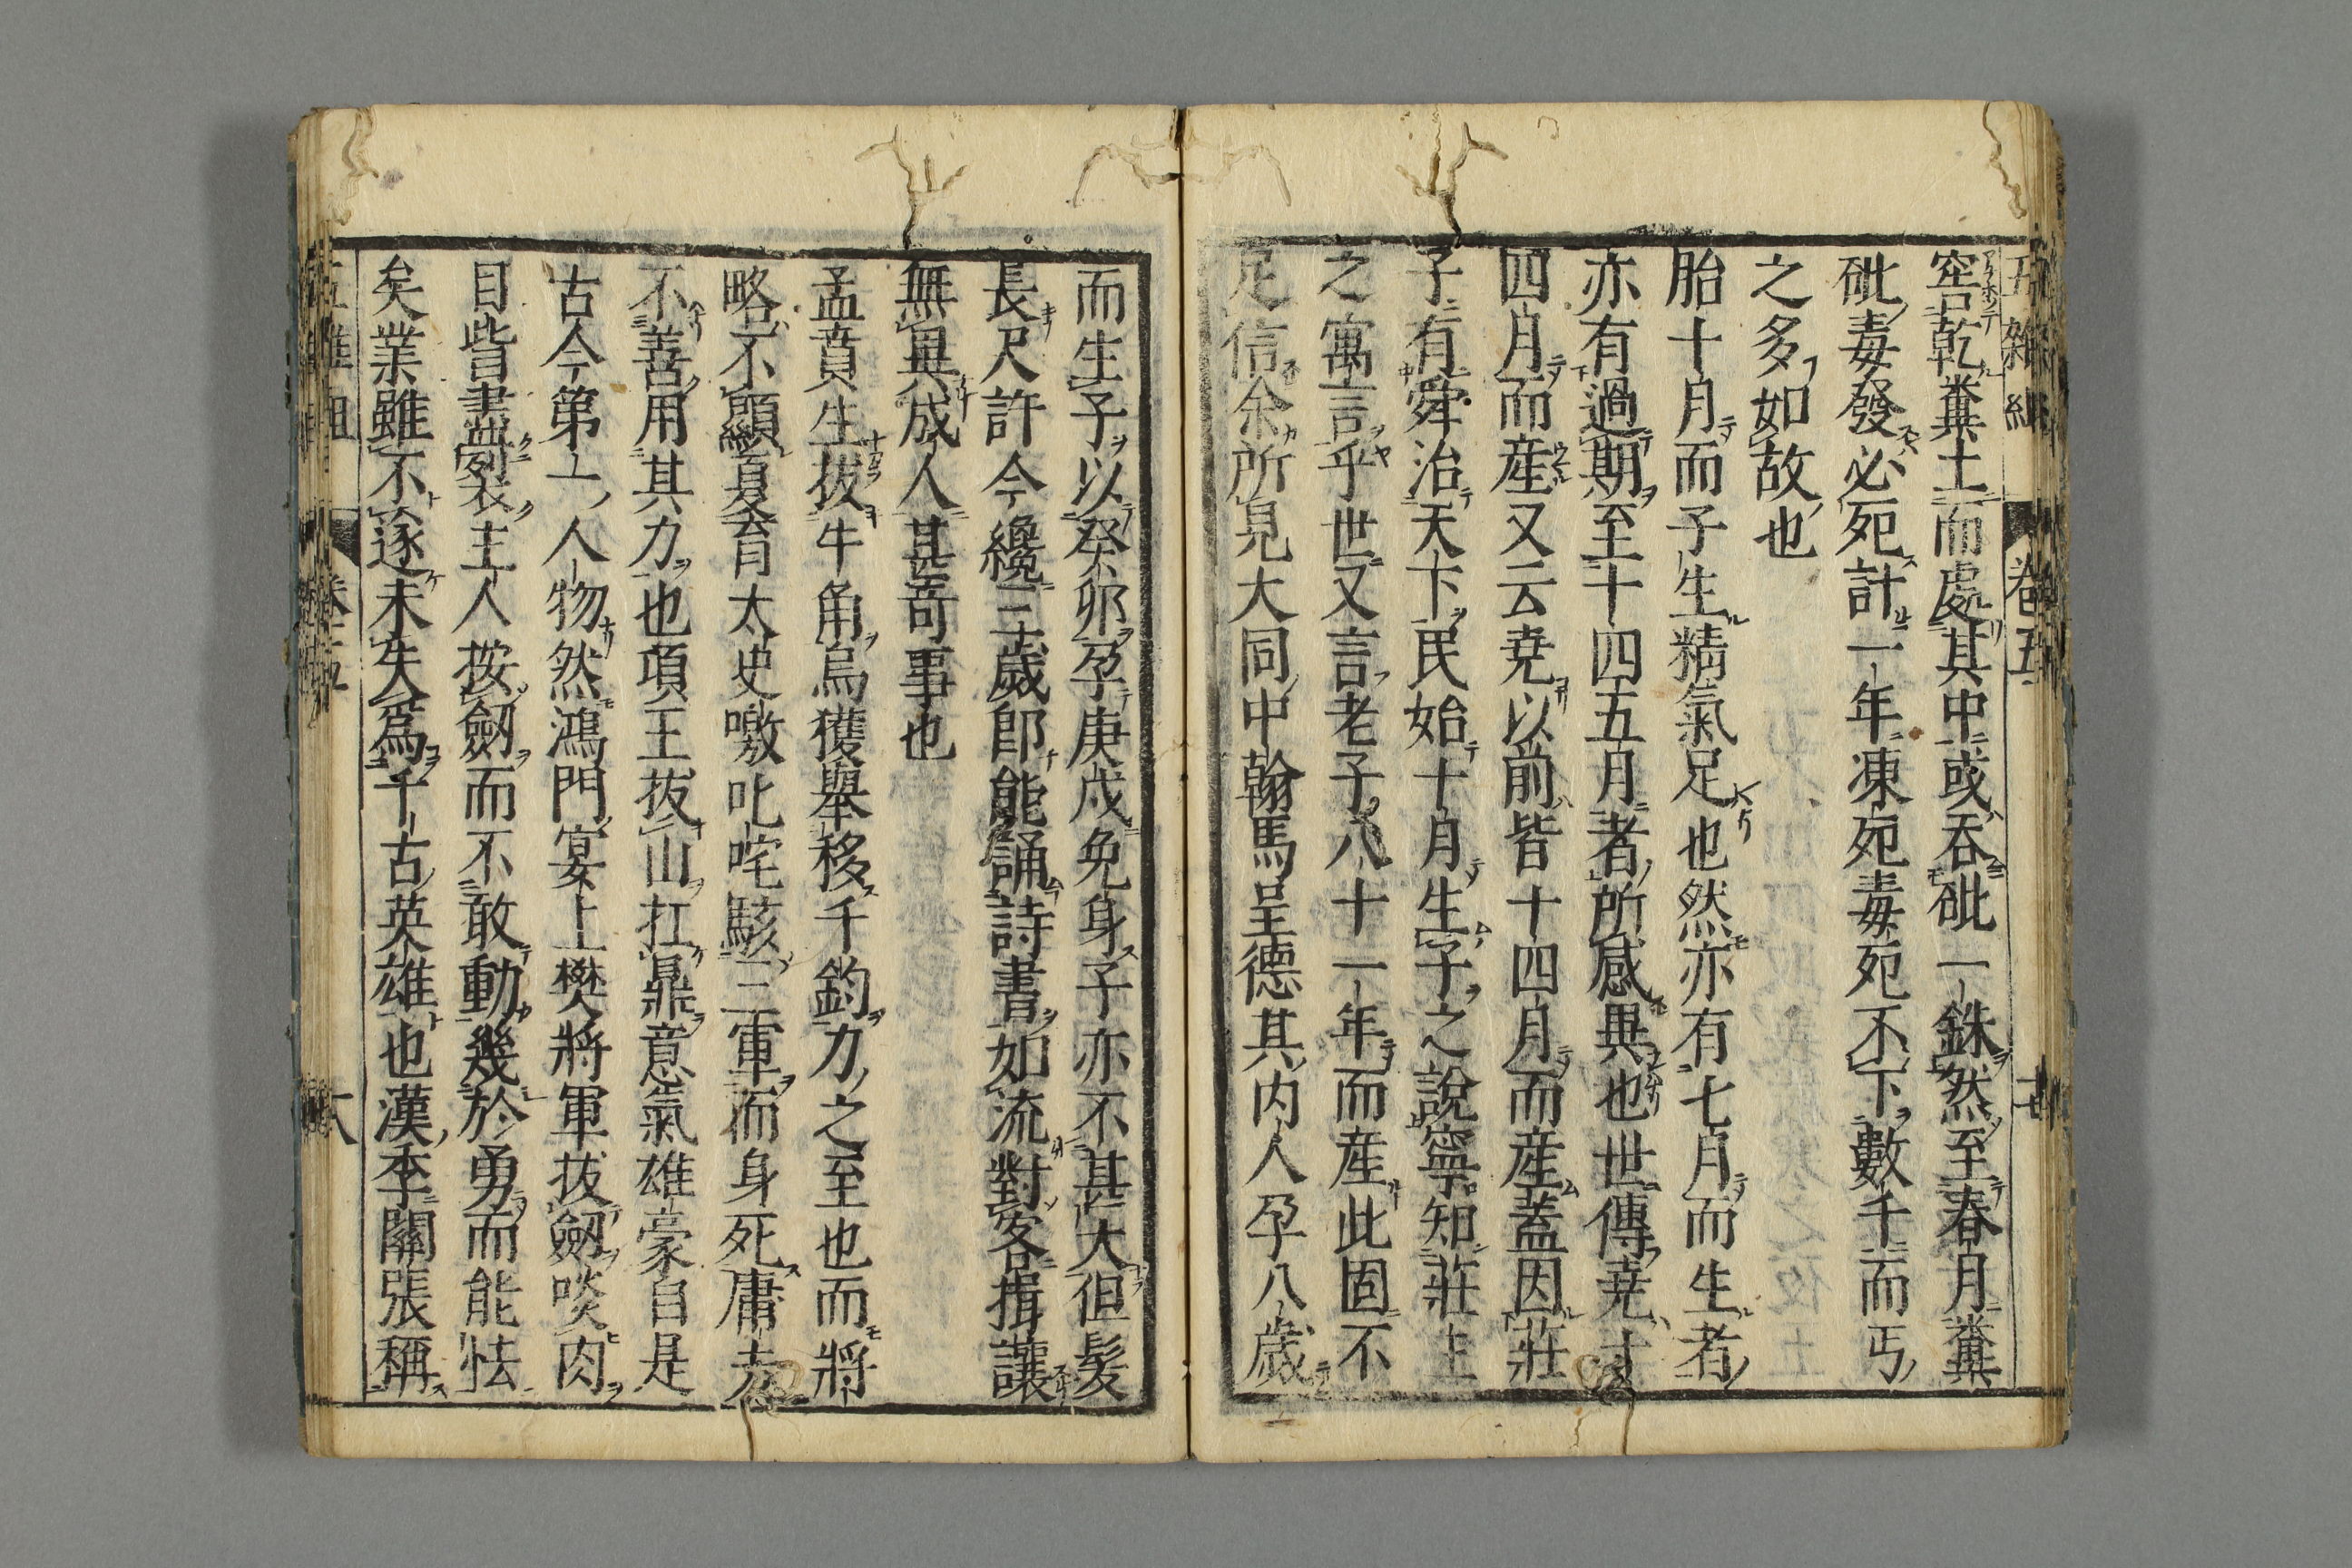 五雜組 卷五
窖乾糞土而處其中或吞砒一銖然至春月糞
砒毒發必死計一年凍死毒死不下數千而丐
之多如故也
胎十月而子生精氣足也然亦有七月而生者
亦有過期至十四五月者所感異也世傳堯十
四月而産又云堯以前皆十四月而産蓋因莊
子有舜治天下民始十月生子之說寧知莊生
之寓言乎世又言老子八十一年而産此固不
足信余所見大同中翰馬呈德其内人孕八歲
而生子以癸卯孕庚戌免身子亦不甚大但髮
長尺許今纔三歲郎能誦詩書如流對客揖讓
無異成人甚奇事也
孟賁生拔牛角烏獲舉移千鈞力之至也而將
略不顯夏育太史噭叱咤駭三軍而身死庸夫
不善用其力也項王拔山扛鼎意氣雄豪自是
古今第一人物然鴻門宴上樊將軍拔劒啖肉
目眥盡裂主人按劒而不敢動幾於勇而能怯
矣業雖不遂未失為千古英雄也漢季關張稱
五雜組 卷五